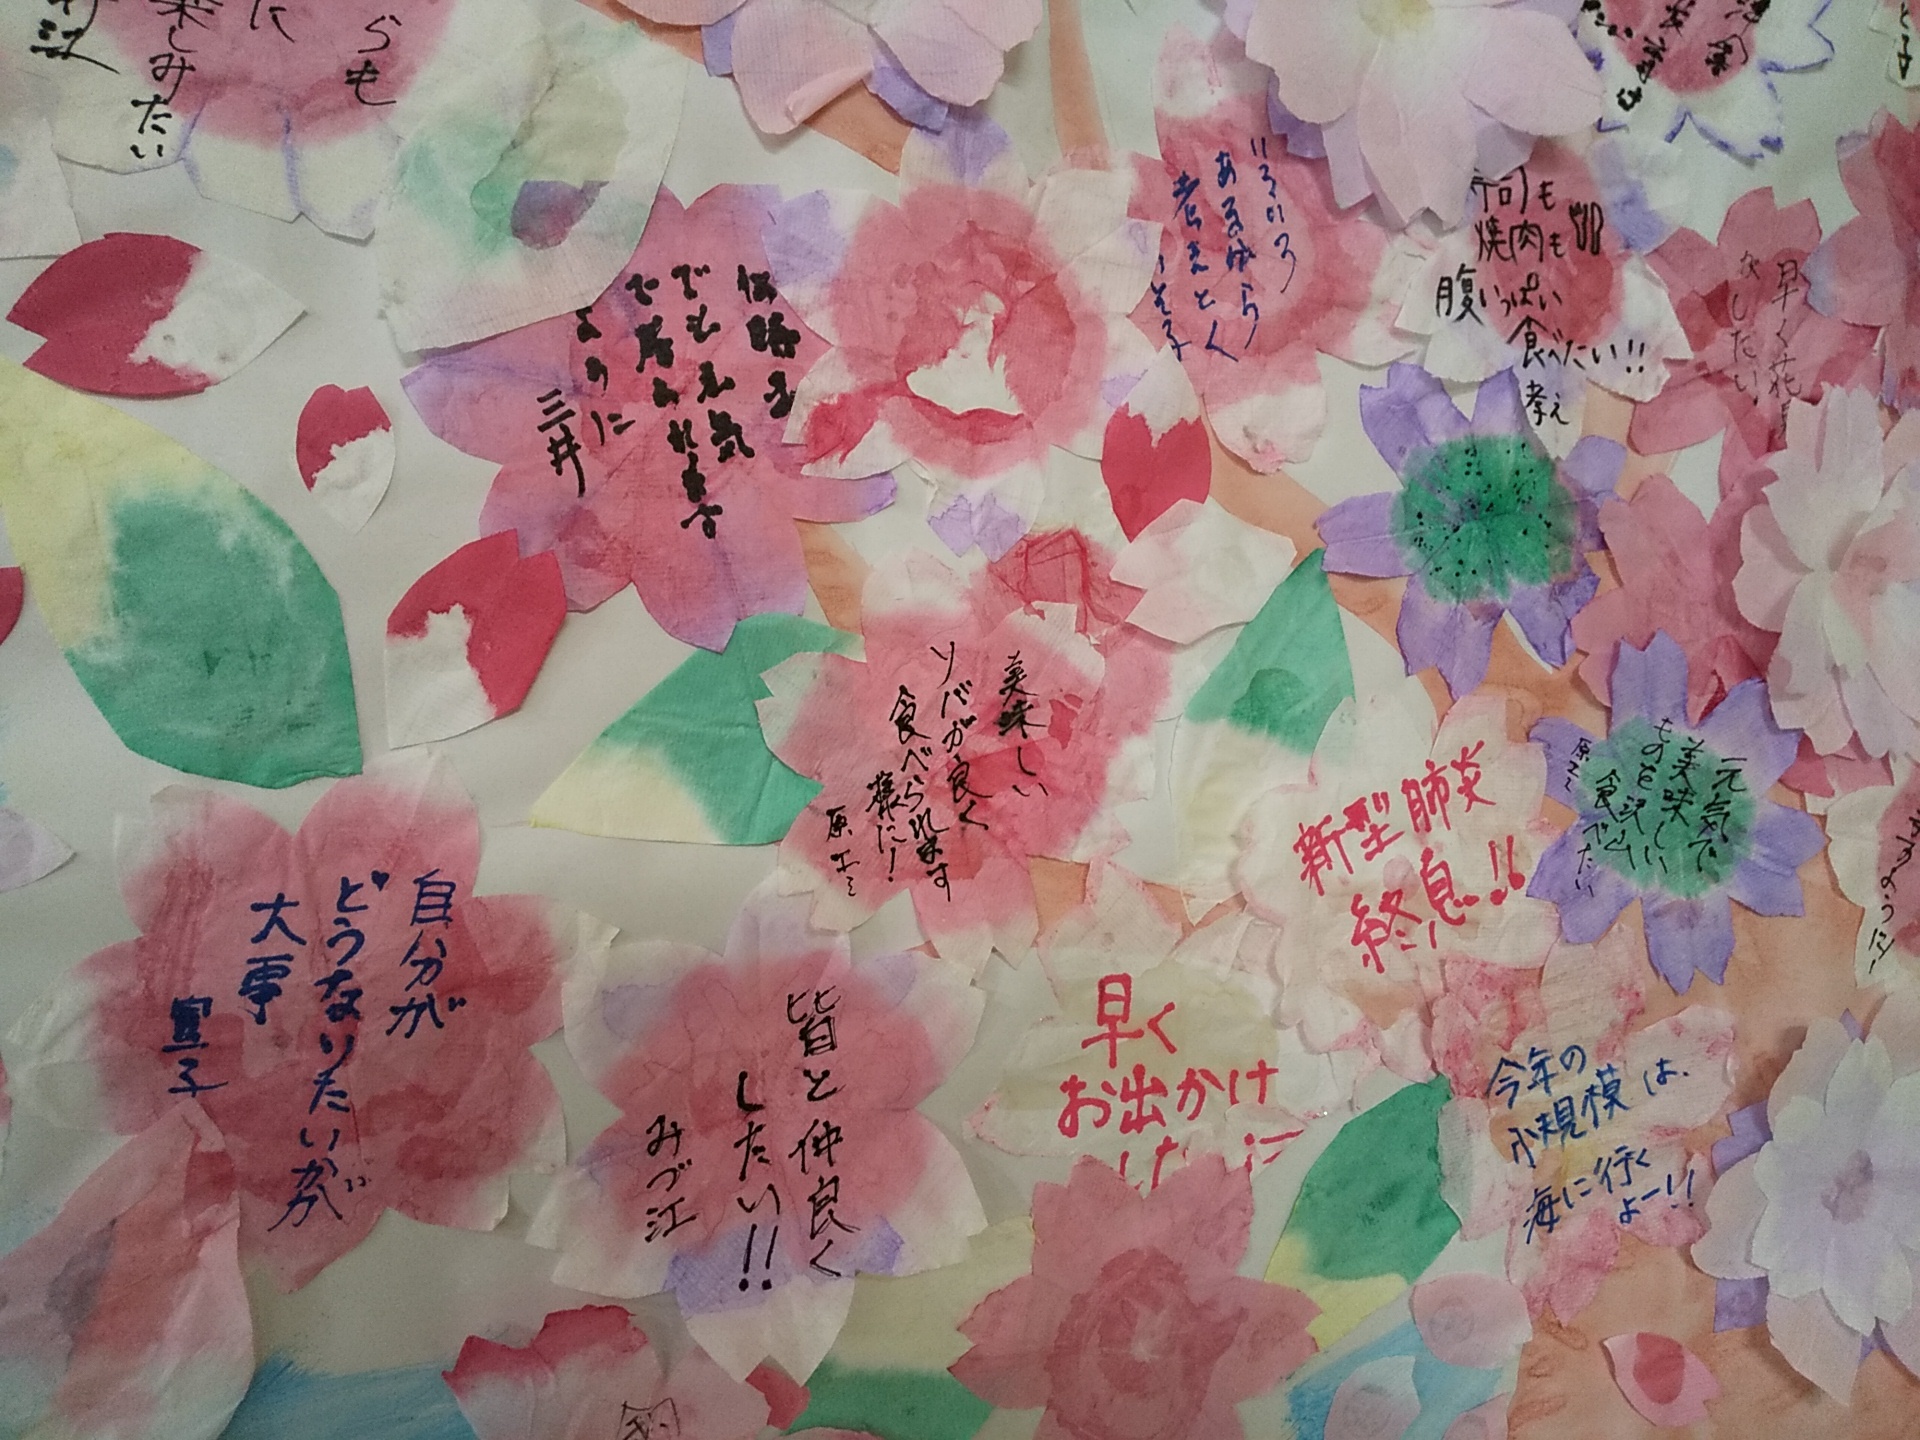 らも
に
楽しみたい
いろいろ
あるから
考えとく
寿司も
焼肉も
腹いっぱい
食べたい!!
孝え
早く花見
がしたい
何時までも元気
で居られます
ように
三井
美味しい
ソバが良く
食べられます
様に!
原エミ
元気で
美味しい
ものを沢山
食べたい
原エミ
新型肺炎
終息!!
自分が
どうなりたいかが
大事
宣子
皆と仲良く
したい!!
みづ江
早く
お出かけ
今年の
小規模は、
海に行く
よー!!
ますように!